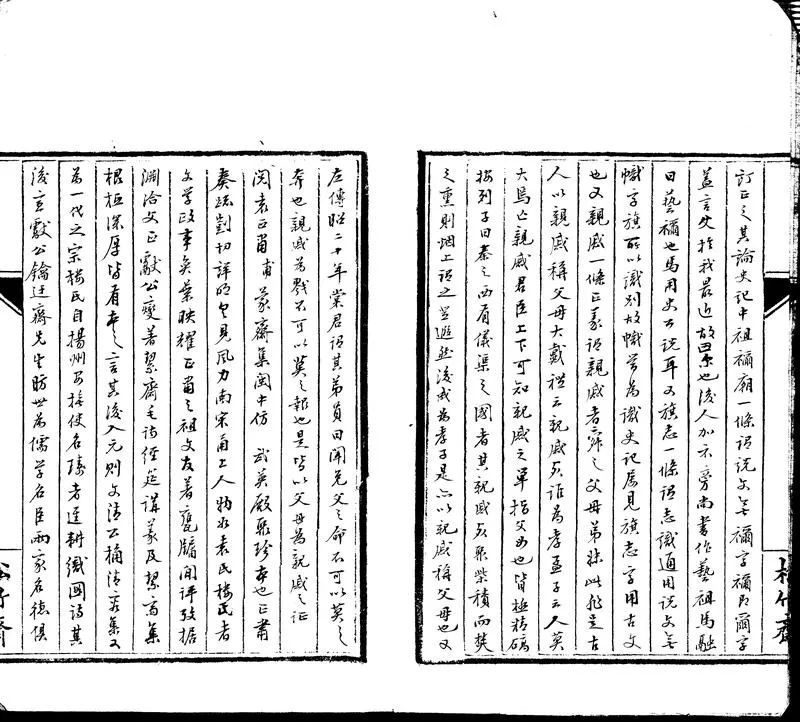 訂正之其論史記中祖禰廟一條謂説文無禰字禰即爾字
蓋言父於我最近故曰尔也後人加示旁尚書作藝祖馬融
曰藝禰也馬用史公説耳又旗志一條謂志識通用説文無
幟字旗所以識别故幟當為識史記屢見旗志字用古文
也又親戚一條正義謂親戚者父母弟此非是古
人以親戚稱父母大戴禮云親戚既誰為孝孟子云人莫
大焉亡親戚君臣上下可知親戚之單指父母也皆極精确
按列子曰秦之西有儀渠之國者其親戚死聚柴積而焚
之重則烟上謂之登遐然後成為孝子是亦以親戚稱父母也又
左傳昭二十年棠君謂其弟員曰聞免父之命不可以莫之
奔也親戚為戮不可以莫之報也是皆以父母為親戚之證
閲袁正肅甫蒙齋集閩中仿 武英殿聚珍本也正肅
奏疏剴切詳明足見風力南宋甬上人物以袁氏樓氏者
文學政事奕葉映耀正肅之祖文友著甕牖閒評考據
淵洽父正獻公燮著絜齋毛詩經筵講義及絜齋集
根柢深厚皆有本之言其後入元則文清公桷清容集又
為一代之宗樓氏自揚州安撫使名璹者進耕織圖詩其
後宣獻公鑰迂齋先生昉世為儒學名臣兩家名德俱
松竹齋
松竹齋